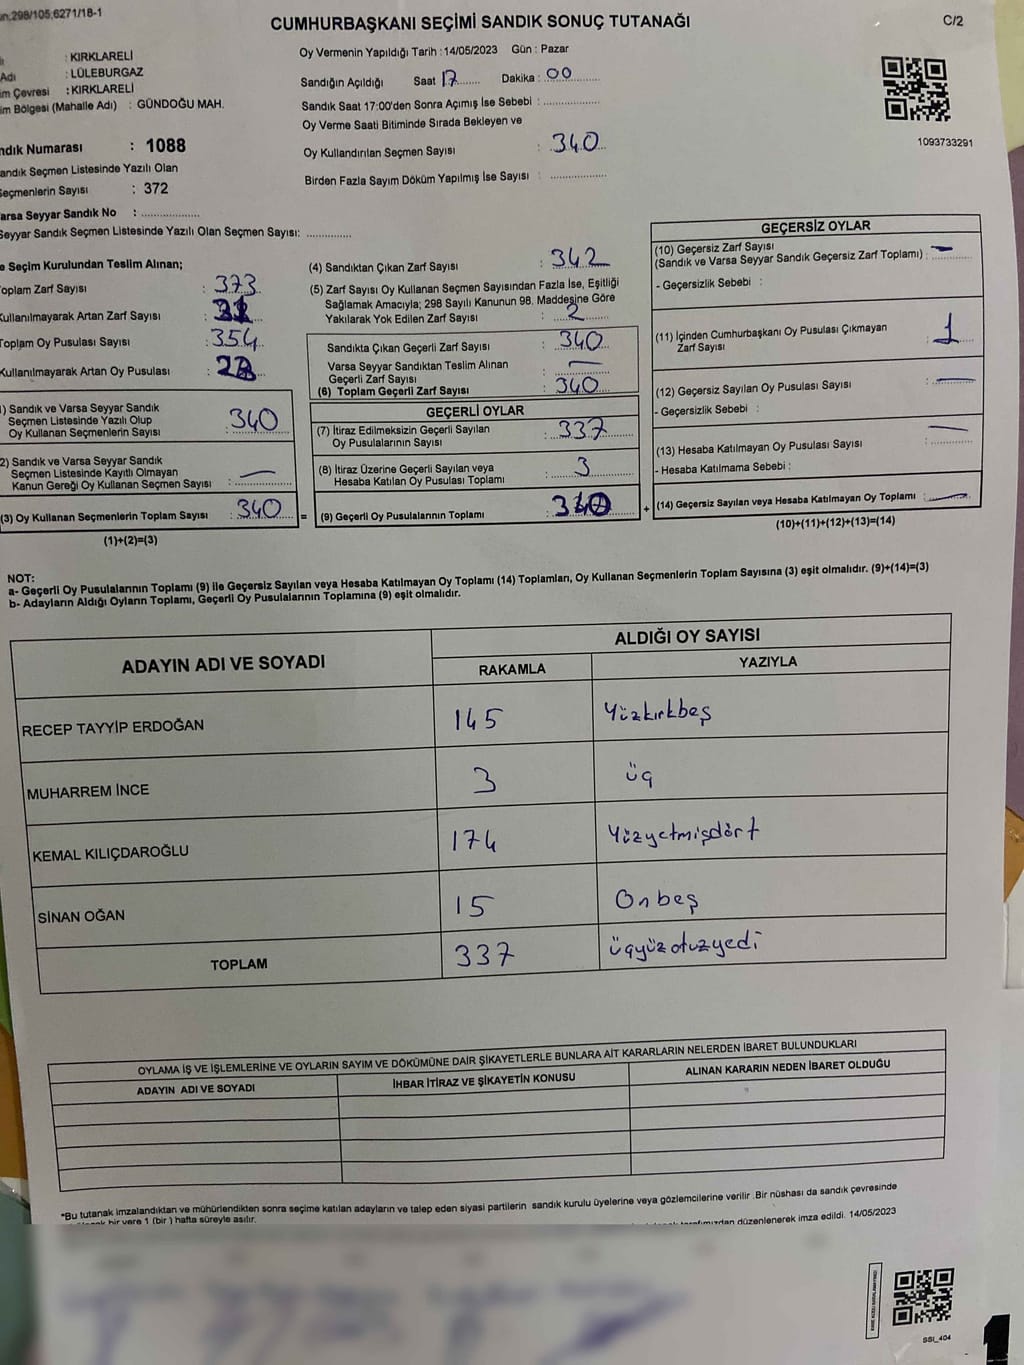 298/105;6271/18-1
CUMHURBAŞKANI SEÇİMİ SANDIK SONUÇ TUTANAĞI
C/2
: KIRKLARELİ
Adı : LÜLEBURGAZ
Çevresi : KIRKLARELİ
Bölgesi (Mahalle Adı) : GÜNDOĞU MAH.
Oy Vermenin Yapıldığı Tarih : 14/05/2023 Gün : Pazar
Sandığın Açıldığı Saat 17 Dakika : 00
Sandık Saat 17:00'den Sonra Açımış İse Sebebi :
Oy Verme Saati Bitiminde Sırada Bekleyen ve
Oy Kullandırılan Seçmen Sayısı : 340
Birden Fazla Sayım Döküm Yapılmış İse Sayısı :
1093733291
Numarası : 1088
Seçmen Listesinde Yazılı Olan
Seçmenlerin Sayısı : 372
Varsa Seyyar Sandık No :
Seyyar Sandık Seçmen Listesinde Yazılı Olan Seçmen Sayısı:
Seçim Kurulundan Teslim Alınan;
Toplam Zarf Sayısı : 373
Kullanılmayarak Artan Zarf Sayısı :
Toplam Oy Pusulası Sayısı : 354
Kullanılmayarak Artan Oy Pusulası :
1) Sandık ve Varsa Seyyar Sandık
Seçmen Listesinde Yazılı Olup
Oy Kullanan Seçmenlerin Sayısı : 340
2) Sandık ve Varsa Seyyar Sandık
Seçmen Listesinde Kayıtlı Olmayan
Kanun Gereği Oy Kullanan Seçmen Sayısı : —
(3) Oy Kullanan Seçmenlerin Toplam Sayısı : 340
(1)+(2)=(3)
=
(4) Sandıktan Çıkan Zarf Sayısı : 342
(5) Zarf Sayısı Oy Kullanan Seçmen Sayısından Fazla İse, Eşitliği
Sağlamak Amacıyla; 298 Sayılı Kanunun 98. Maddesine Göre
Yakılarak Yok Edilen Zarf Sayısı : 2
Sandıkta Çıkan Geçerli Zarf Sayısı : 340
Varsa Seyyar Sandıktan Teslim Alınan
Geçerli Zarf Sayısı : —
(6) Toplam Geçerli Zarf Sayısı : 340
GEÇERLİ OYLAR
(7) İtiraz Edilmeksizin Geçerli Sayılan
Oy Pusulalarının Sayısı : 337
(8) İtiraz Üzerine Geçerli Sayılan veya
Hesaba Katılan Oy Pusulası Toplamı : 3
(9) Geçerli Oy Pusulalarının Toplamı : 340
+
GEÇERSİZ OYLAR
(10) Geçersiz Zarf Sayısı
(Sandık ve Varsa Seyyar Sandık Geçersiz Zarf Toplamı) : —
- Geçersizlik Sebebi :
(11) İçinden Cumhurbaşkanı Oy Pusulası Çıkmayan
Zarf Sayısı : 1
(12) Geçersiz Sayılan Oy Pusulası Sayısı : —
- Geçersizlik Sebebi :
(13) Hesaba Katılmayan Oy Pusulası Sayısı : —
- Hesaba Katılmama Sebebi :
(14) Geçersiz Sayılan veya Hesaba Katılmayan Oy Toplamı : —
(10)+(11)+(12)+(13)=(14)
NOT:
a- Geçerli Oy Pusulalarının Toplamı (9) ile Geçersiz Sayılan veya Hesaba Katılmayan Oy Toplamı (14) Toplamları, Oy Kullanan Seçmenlerin Toplam Sayısına (3) eşit olmalıdır. (9)+(14)=(3)
b- Adayların Aldığı Oyların Toplamı, Geçerli Oy Pusulalarının Toplamına (9) eşit olmalıdır.
ADAYIN ADI VE SOYADI
ALDIĞI OY SAYISI
RAKAMLA YAZIYLA
RECEP TAYYİP ERDOĞAN 145 Yüzkırkbeş
MUHARREM İNCE 3 üç
KEMAL KILIÇDAROĞLU 174 Yüzyetmişdört
SİNAN OĞAN 15 Onbeş
TOPLAM 337 üçyüzotuzyedi
OYLAMA İŞ VE İŞLEMLERİNE VE OYLARIN SAYIM VE DÖKÜMÜNE DAİR ŞİKAYETLERLE BUNLARA AİT KARARLARIN NELERDEN İBARET BULUNDUKLARI
ADAYIN ADI VE SOYADI İHBAR İTİRAZ VE ŞİKAYETİN KONUSU ALINAN KARARIN NEDEN İBARET OLDUĞU
*Bu tutanak imzalandıktan ve mühürlendikten sonra seçime katılan adayların ve talep eden siyasi partilerin sandık kurulu üyelerine veya gözlemcilerine verilir .Bir nüshası da sandık çevresinde
bir yere 1 (bir ) hafta süreyle asılır.
düzenlenerek imza edildi. 14/05/2023
SSI_404
1